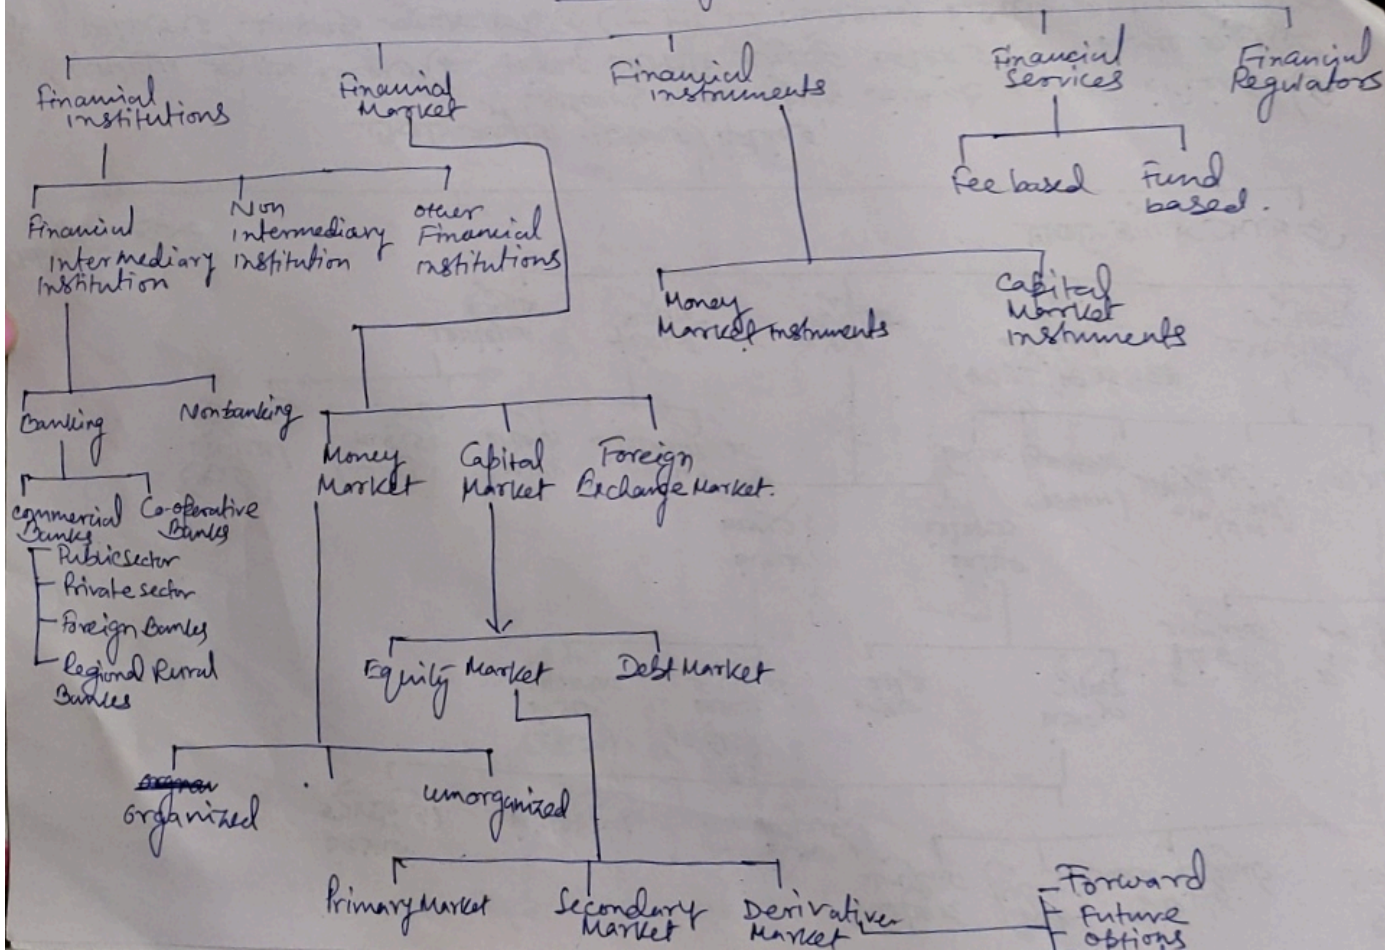 Financial
Institutions
Financial
Market
Financial
instruments
Financial
Services
Financial
Regulators
Fee based
Fund
based.
Financial
Intermediary
Institution
Non
Intermediary
Institution
other
Financial
institutions
Money
Market instruments
Capital
Market
instruments
Banking
Nonbanking
Money
Market
Capital
Market
Foreign
Exchange Market.
commercial
Banks
Co-operative
Banks
Public sector
Private sector
Foreign Banks
Regional Rural
Banks
Equity Market
Debt Market
organized
unorganized
Primary Market
Secondary
Market
Derivative
Market
Forward
Future
options